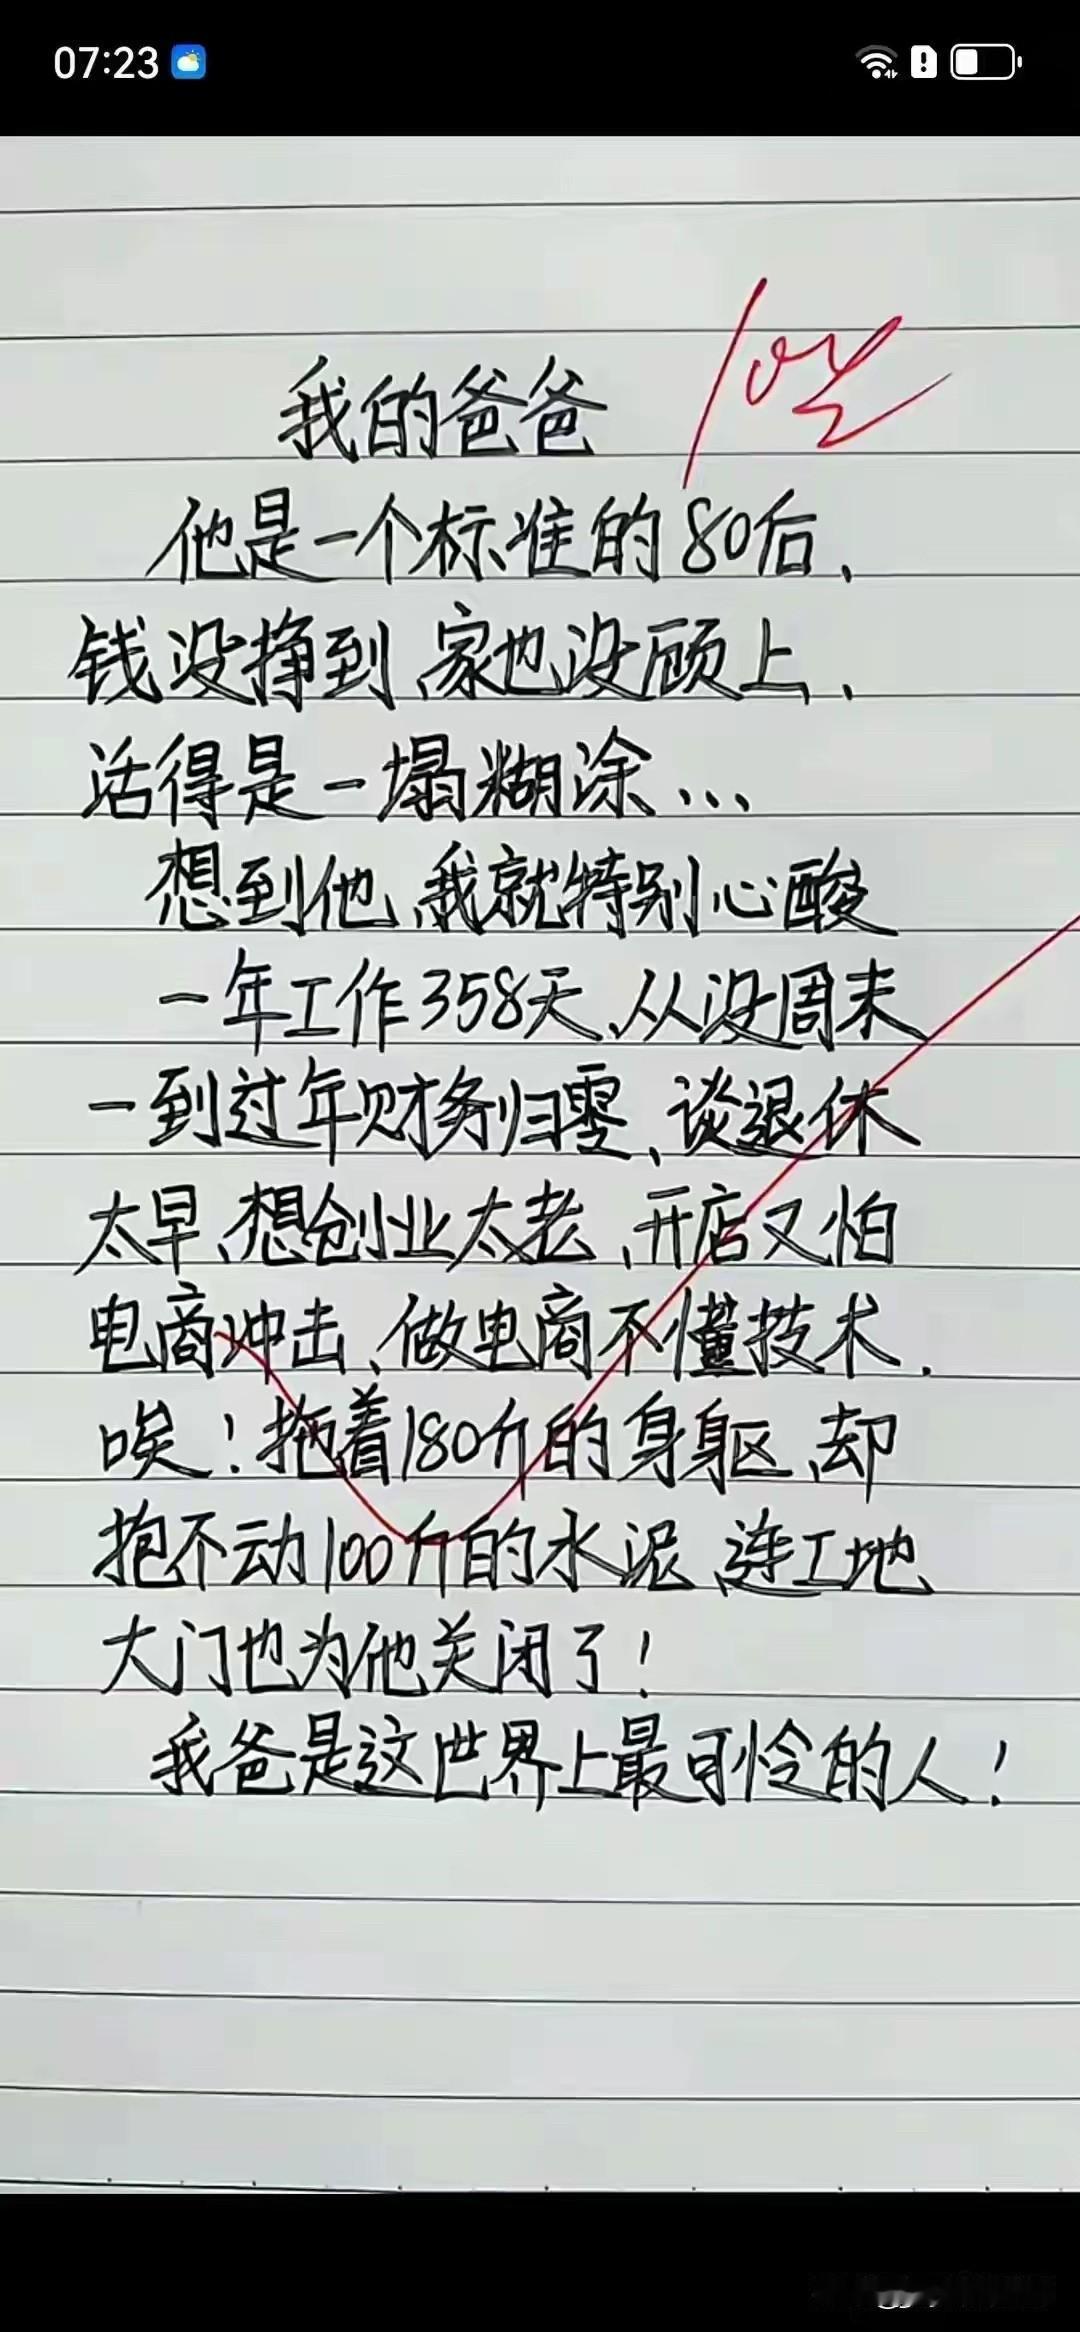 07:23
我的爸爸
他是一个标准的80后、
钱没挣到、家也没顾上、
活得是一塌糊涂...
想到他、我就特别心酸
一年工作358天、从没周末
一到过年财务归零、谈退休
太早、想创业太老、开店又怕
电商冲击、做电商不懂技术.
唉！拖着180斤的身躯、却
抱不动100斤的水泥、连工地
大门也为他关闭了！
我爸是这世界上最可怜的人！